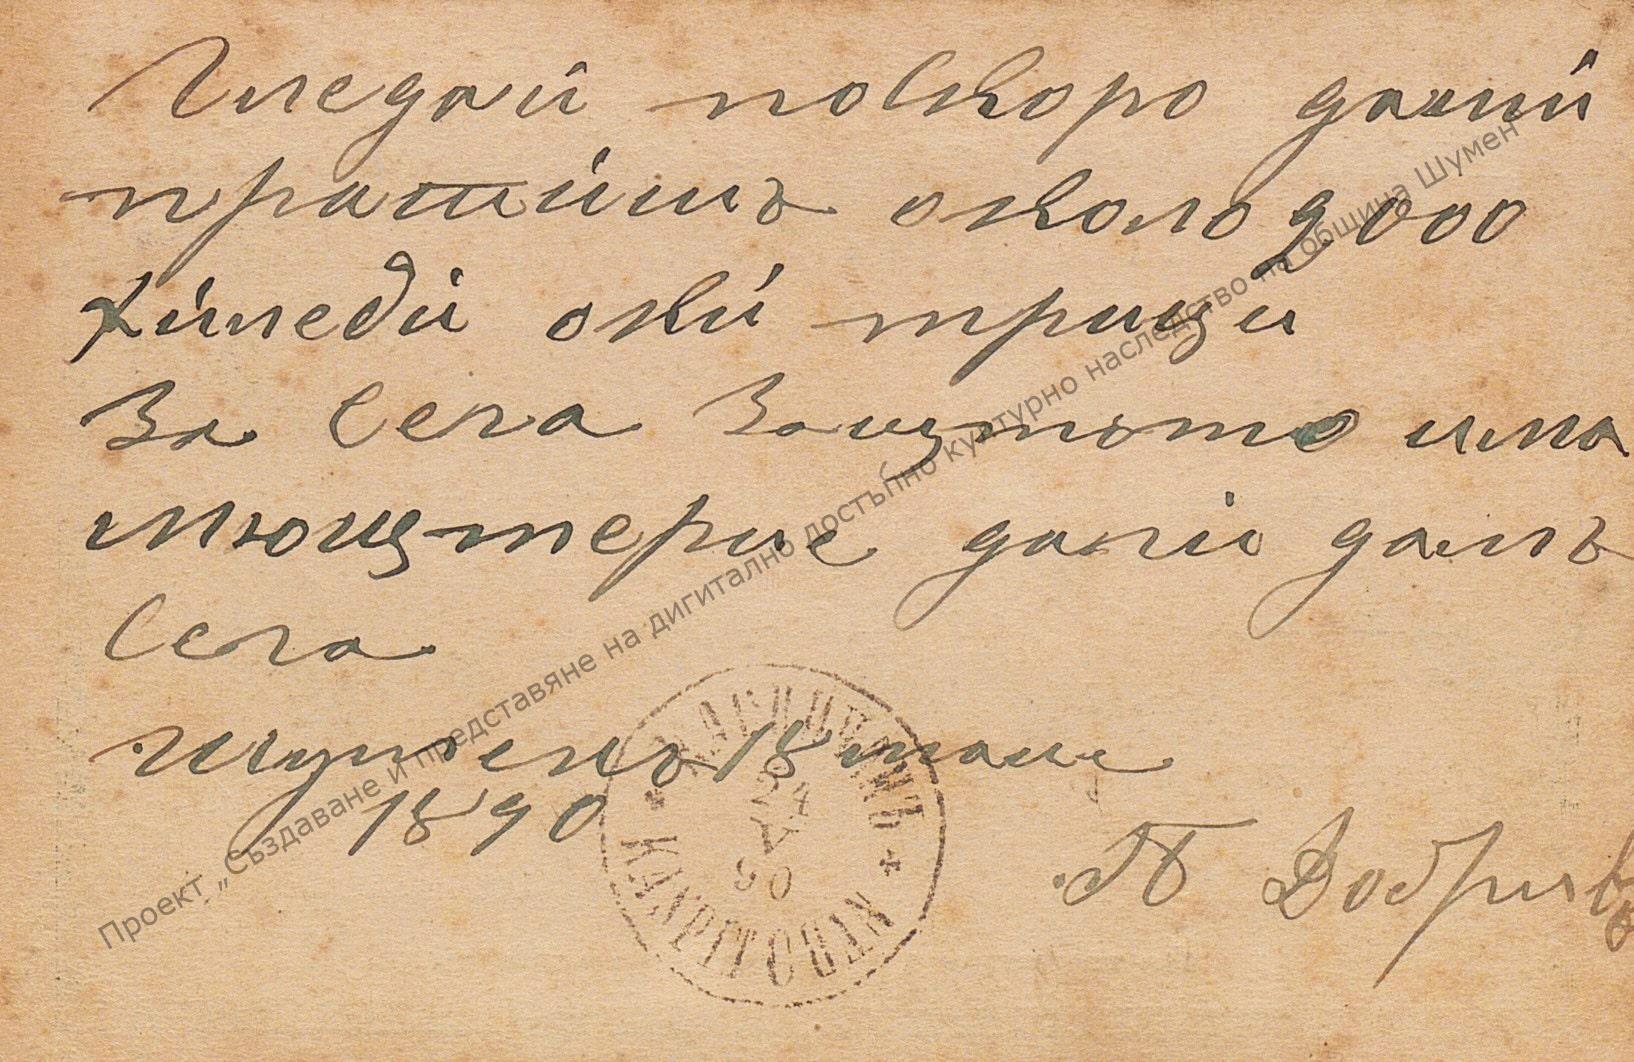 Гледай поскоро дами
пратишъ около 2000
хиледи оки трици
За сега защтото има
мющтерие даги дамъ
сега
Шуменъ 18 маие
1890
П Добривъ
24
V
90
Проект „Създаване и представяне на дигитално достъпно културно наследство на община Шумен